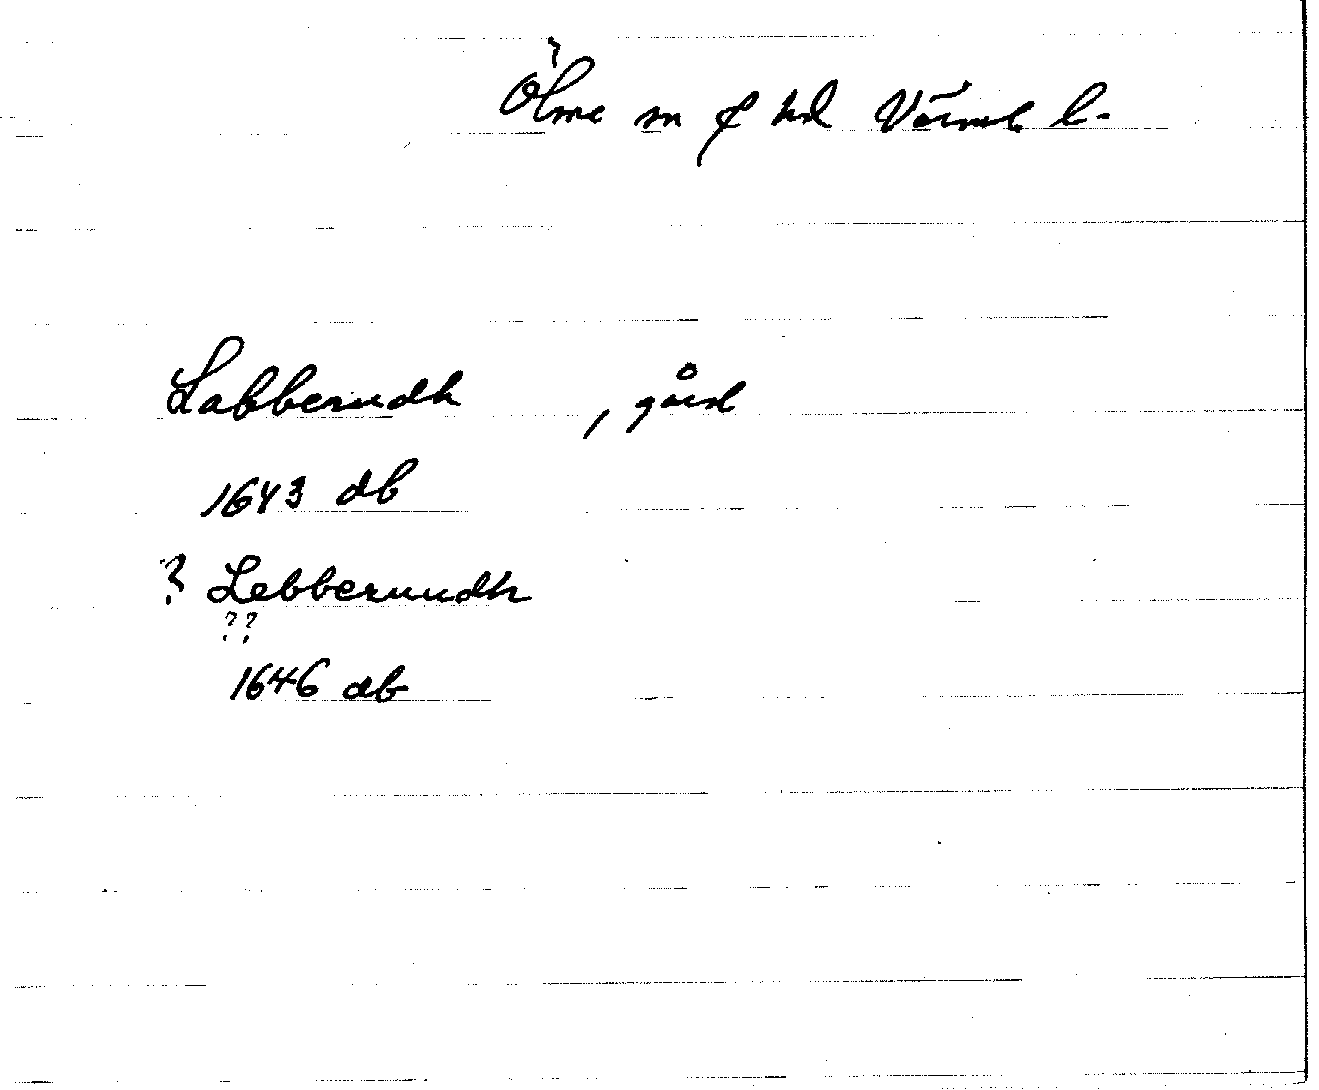 Ölme sn o hd Värml l.
Labberudh , gård
1643 db
? Lebberuudh
??
1646 db